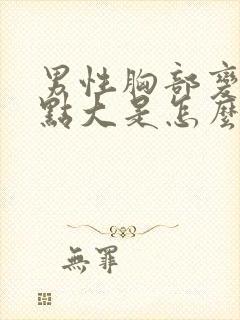 男性胸部變
點大是怎麼
無罪